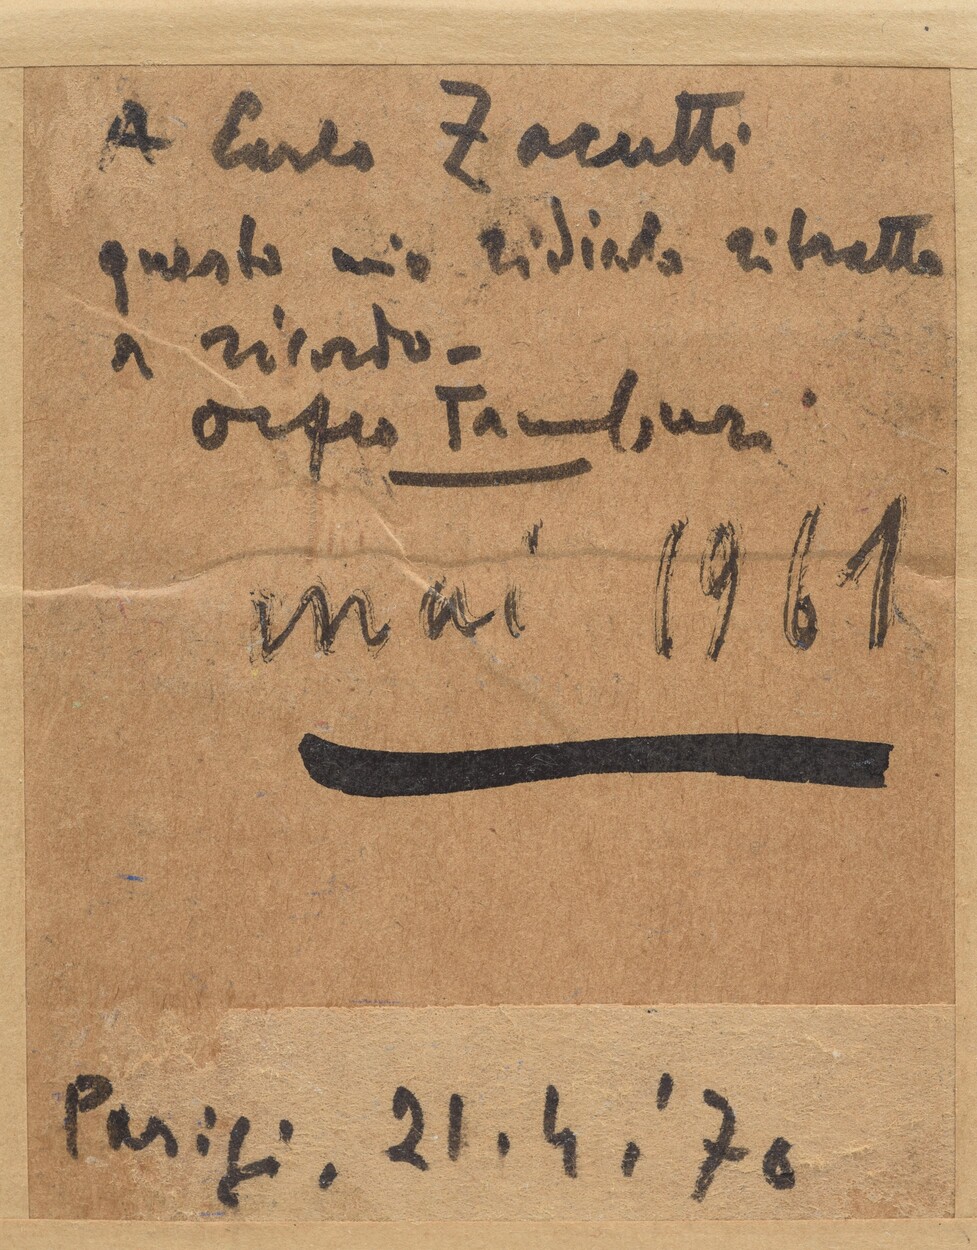 A Carlo Zacutti
questo mio ritratto
a ricordo -
Orfeo Tamburi
mai 1961
Parigi, 21.4.'70